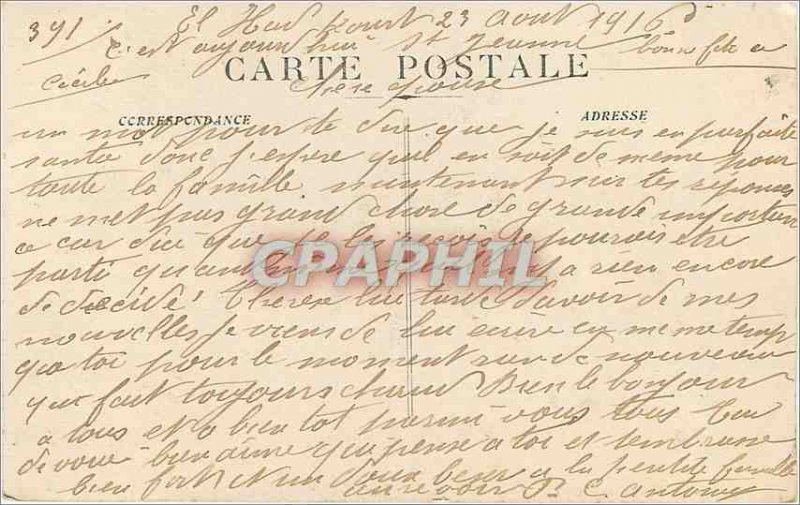 391
El Had Kourt 23 aout 1916
C'est aujourd'hui St Jeanne bonne fete a
Cecile
CARTE POSTALE
Chere epouse
CORRESPONDANCE
ADRESSE
un mot pour te dire que je suis en parfaite
santé donc j'espere quil en soit de meme pour
toute la famille maintenant sur tes reponses
ne met pas grand chose de grande importan
ce car dici que je la reçois je pourais etre
parti quand a rien encore
de decidé! Therese lui tarde davoir de mes
nouvelles je viens de lui ecrire en meme temp
que toi pour le moment rien de nouveau
que fait toujours chaud Bien le bonjour
a tous et a bien tot parmi vous tous Ton
devoué bien aimé qui pense a toi et tembrasse
bien fort et un doux baiser a la petite famille
au revoir P. C. Antony
CPAPHIL